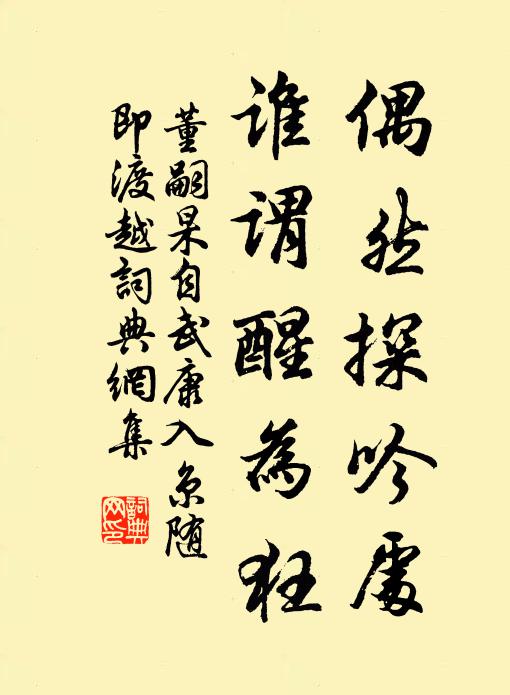 偶然探吟處
誰謂醒為狂
董嗣杲自武康入京随
即渡越詞典網集
詞典网印